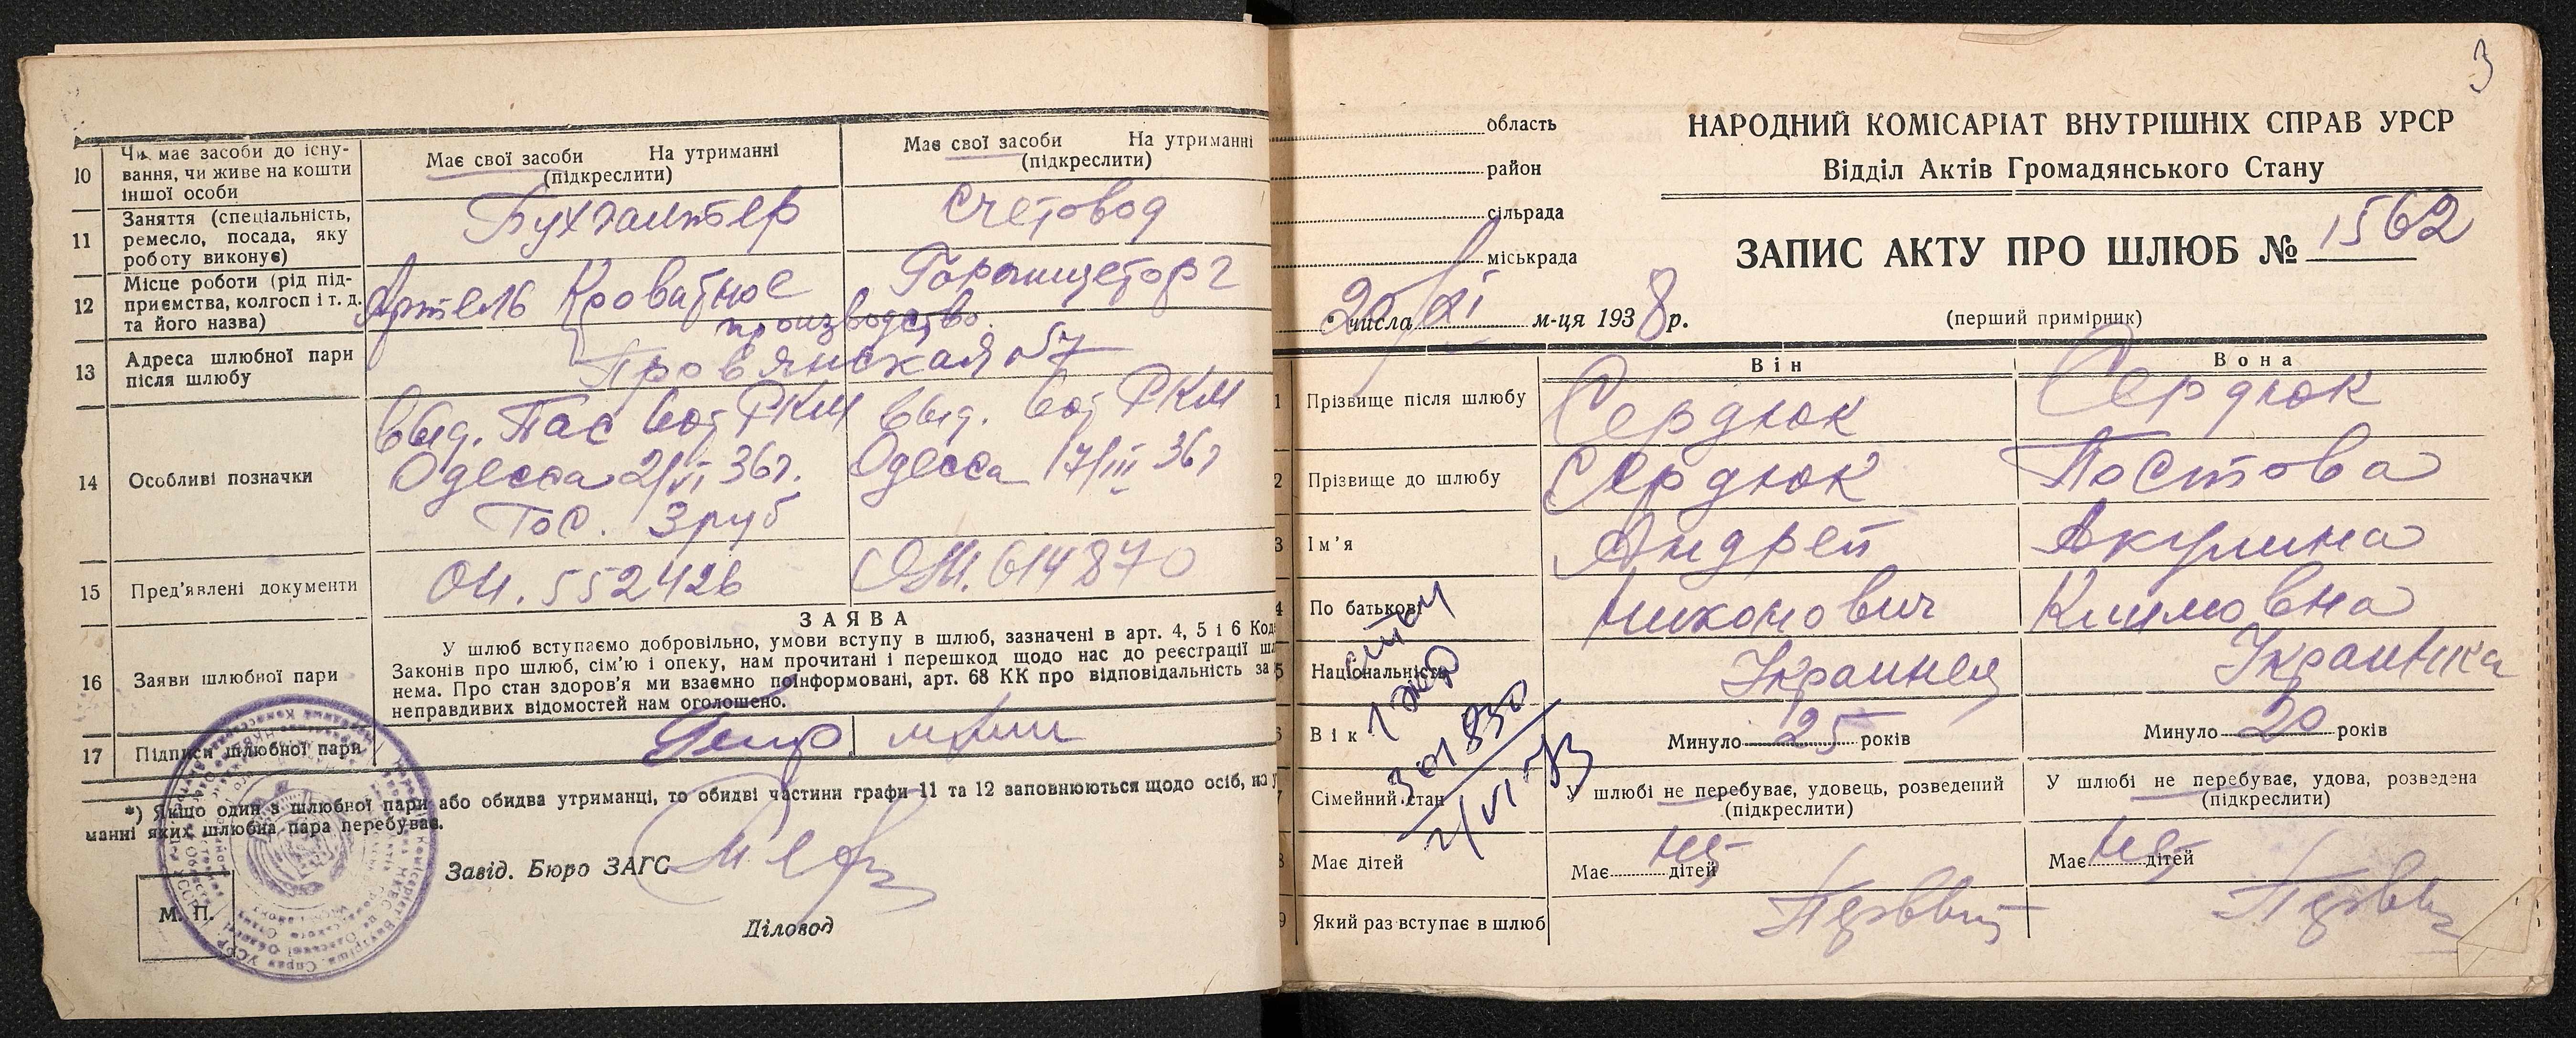 10 Чи має засоби до існу-
вання, чи живе на кошти
іншої особи
Має свої засоби На утриманні
(підкреслити)
Має свої засоби На утриманні
(підкреслити)
11 Заняття (спеціальність,
ремесло, посада, яку
роботу виконує)
Бухгалтер
Счетовод
12 Місце роботи (рід під-
приємства, колгосп і т. д.
та його назва)
Артель Кроватное
производство
Горпищеторг
13 Адреса шлюбної пари
після шлюбу
14 Особливі позначки
Выд. Пас РКМ
Одесса 2/VI 36г.
Гос. 3 руб
выд. РКМ
Одесса 17/III 36г
15 Пред'явлені документи
ОЧ. 552426
614870
16 Заяви шлюбної пари
ЗАЯВА
У шлюб вступаємо добровільно, умови вступу в шлюб, зазначені в арт. 4, 5 і 6 Код
Законів про шлюб, сім'ю і опеку, нам прочитані і перешкод щодо нас до реєстрації шл
нема. Про стан здоров'я ми взаємно поінформовані, арт. 68 КК про відповідальність за
неправдивих відомостей нам оголошено.
17 Підписи шлюбної пари
*) Якщо один з шлюбної пари або обидва утриманці, то обидві частини графи 11 та 12 заповнюються щодо осіб, на у
манні яких шлюбна пара перебуває.
Завід. Бюро ЗАГС
М. П.
Діловод
3
область
район
сільрада
міськрада
НАРОДНИЙ КОМІСАРІАТ ВНУТРІШНІХ СПРАВ УРСР
Відділ Актів Громадянського Стану
ЗАПИС АКТУ ПРО ШЛЮБ № 1562
20 числа XI м-ця 1938 р.
(перший примірник)
Він
Вона
1 Прізвище після шлюбу
Сердюк
Сердюк
2 Прізвище до шлюбу
Сердюк
Постова
3 Ім'я
Андрей
Акулина
4 По батькові
Никонович
Климовна
5 Національність
Украинец
Украинка
6 Вік
Минуло 25 років
Минуло 20 років
7 Сімейний стан
У шлюбі не перебуває, удовець, розведений
(підкреслити)
У шлюбі не перебуває, удова, розведена
(підкреслити)
8 Має дітей
Має нет дітей
Має нет дітей
9 Який раз вступає в шлюб
Первый
Первый